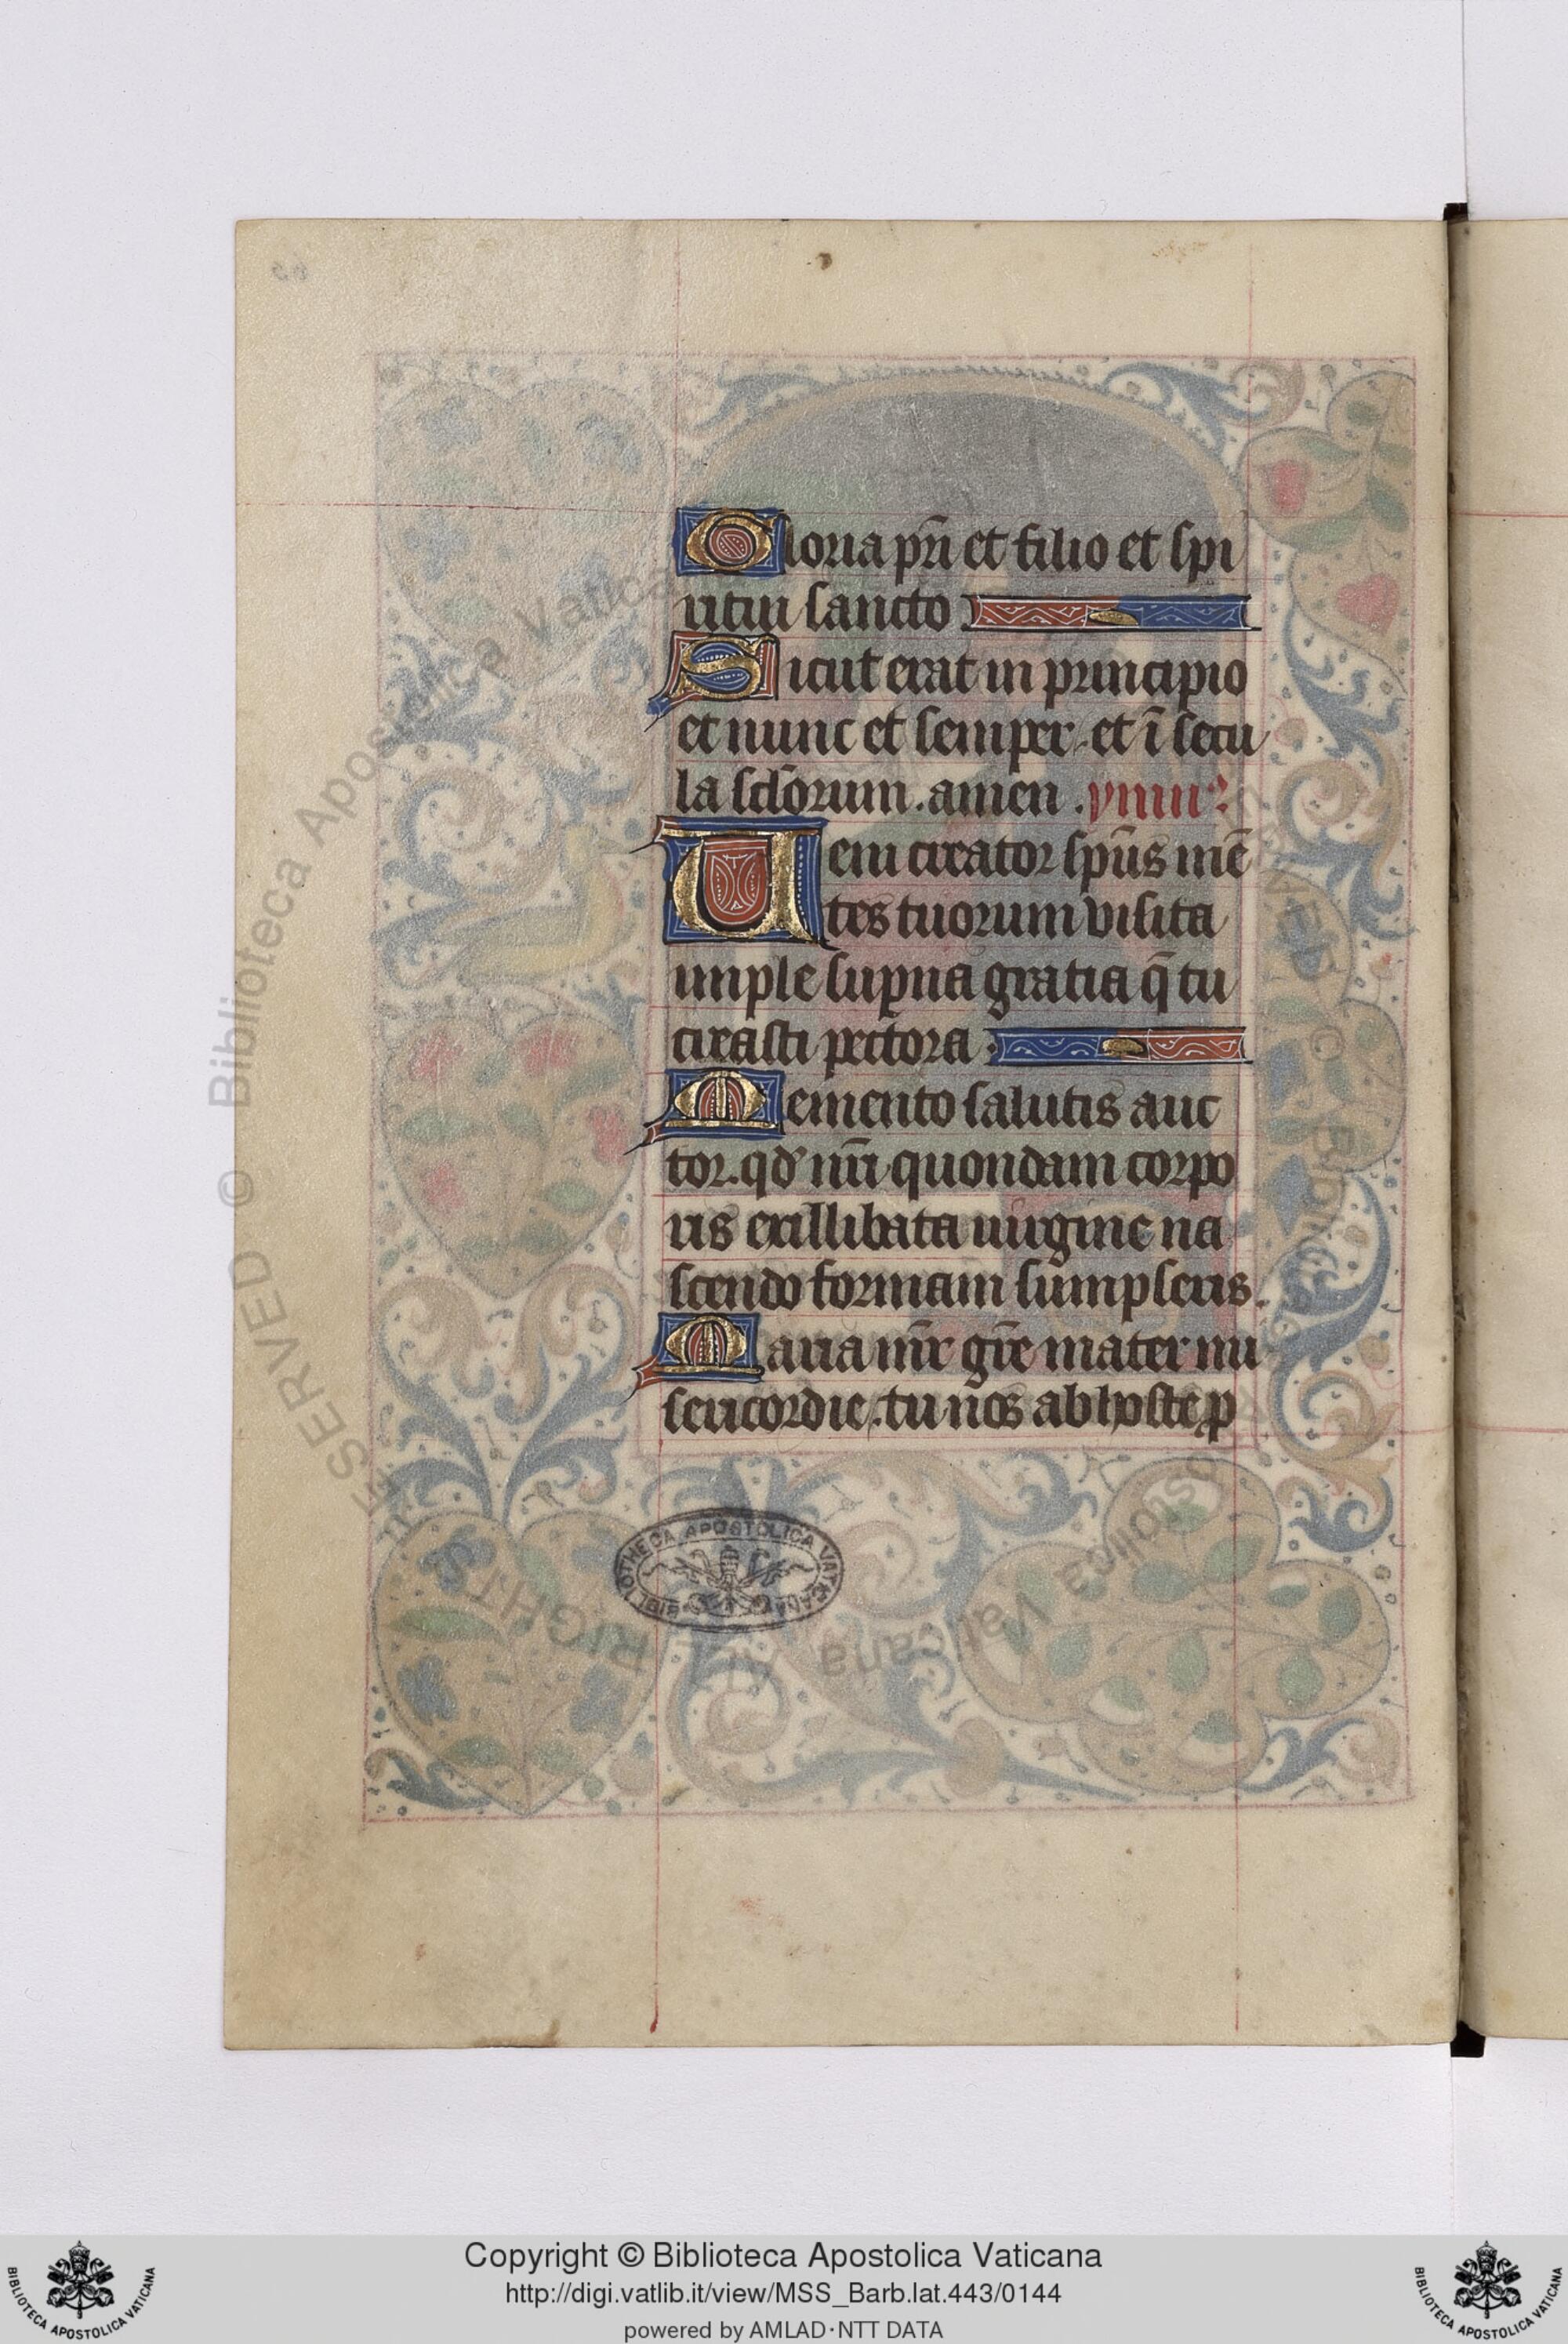 Gloria pr̄i et filio et spi
ritui sancto
Sicut erat in principio
et nunc et semper et ī secu
la sc̄lorum. amen. ymnꝰ
Ueni creator sp̄us mē
tes tuorum visita
imple suꝑna gratia q̄ tu
creasti pectora
Memento salutis auc
tor. qd' nr̄i quondam corpo
ris exillibata uirgine na
scendo formam sumpseris.
Maria mr̄ gr̄e mater mi
sericordie. tu nos ab hoste ꝓ
BIBLIOTHECA APOSTOLICA VATICANA
© Biblioteca Apostolica Vaticana
ALL RIGHTS RESERVED
Copyright © Biblioteca Apostolica Vaticana
http://digi.vatlib.it/view/MSS_Barb.lat.443/0144
powered by AMLAD·NTT DATA
BIBLIOTECA APOSTOLICA VATICANA
BIBLIOTECA APOSTOLICA VATICANA